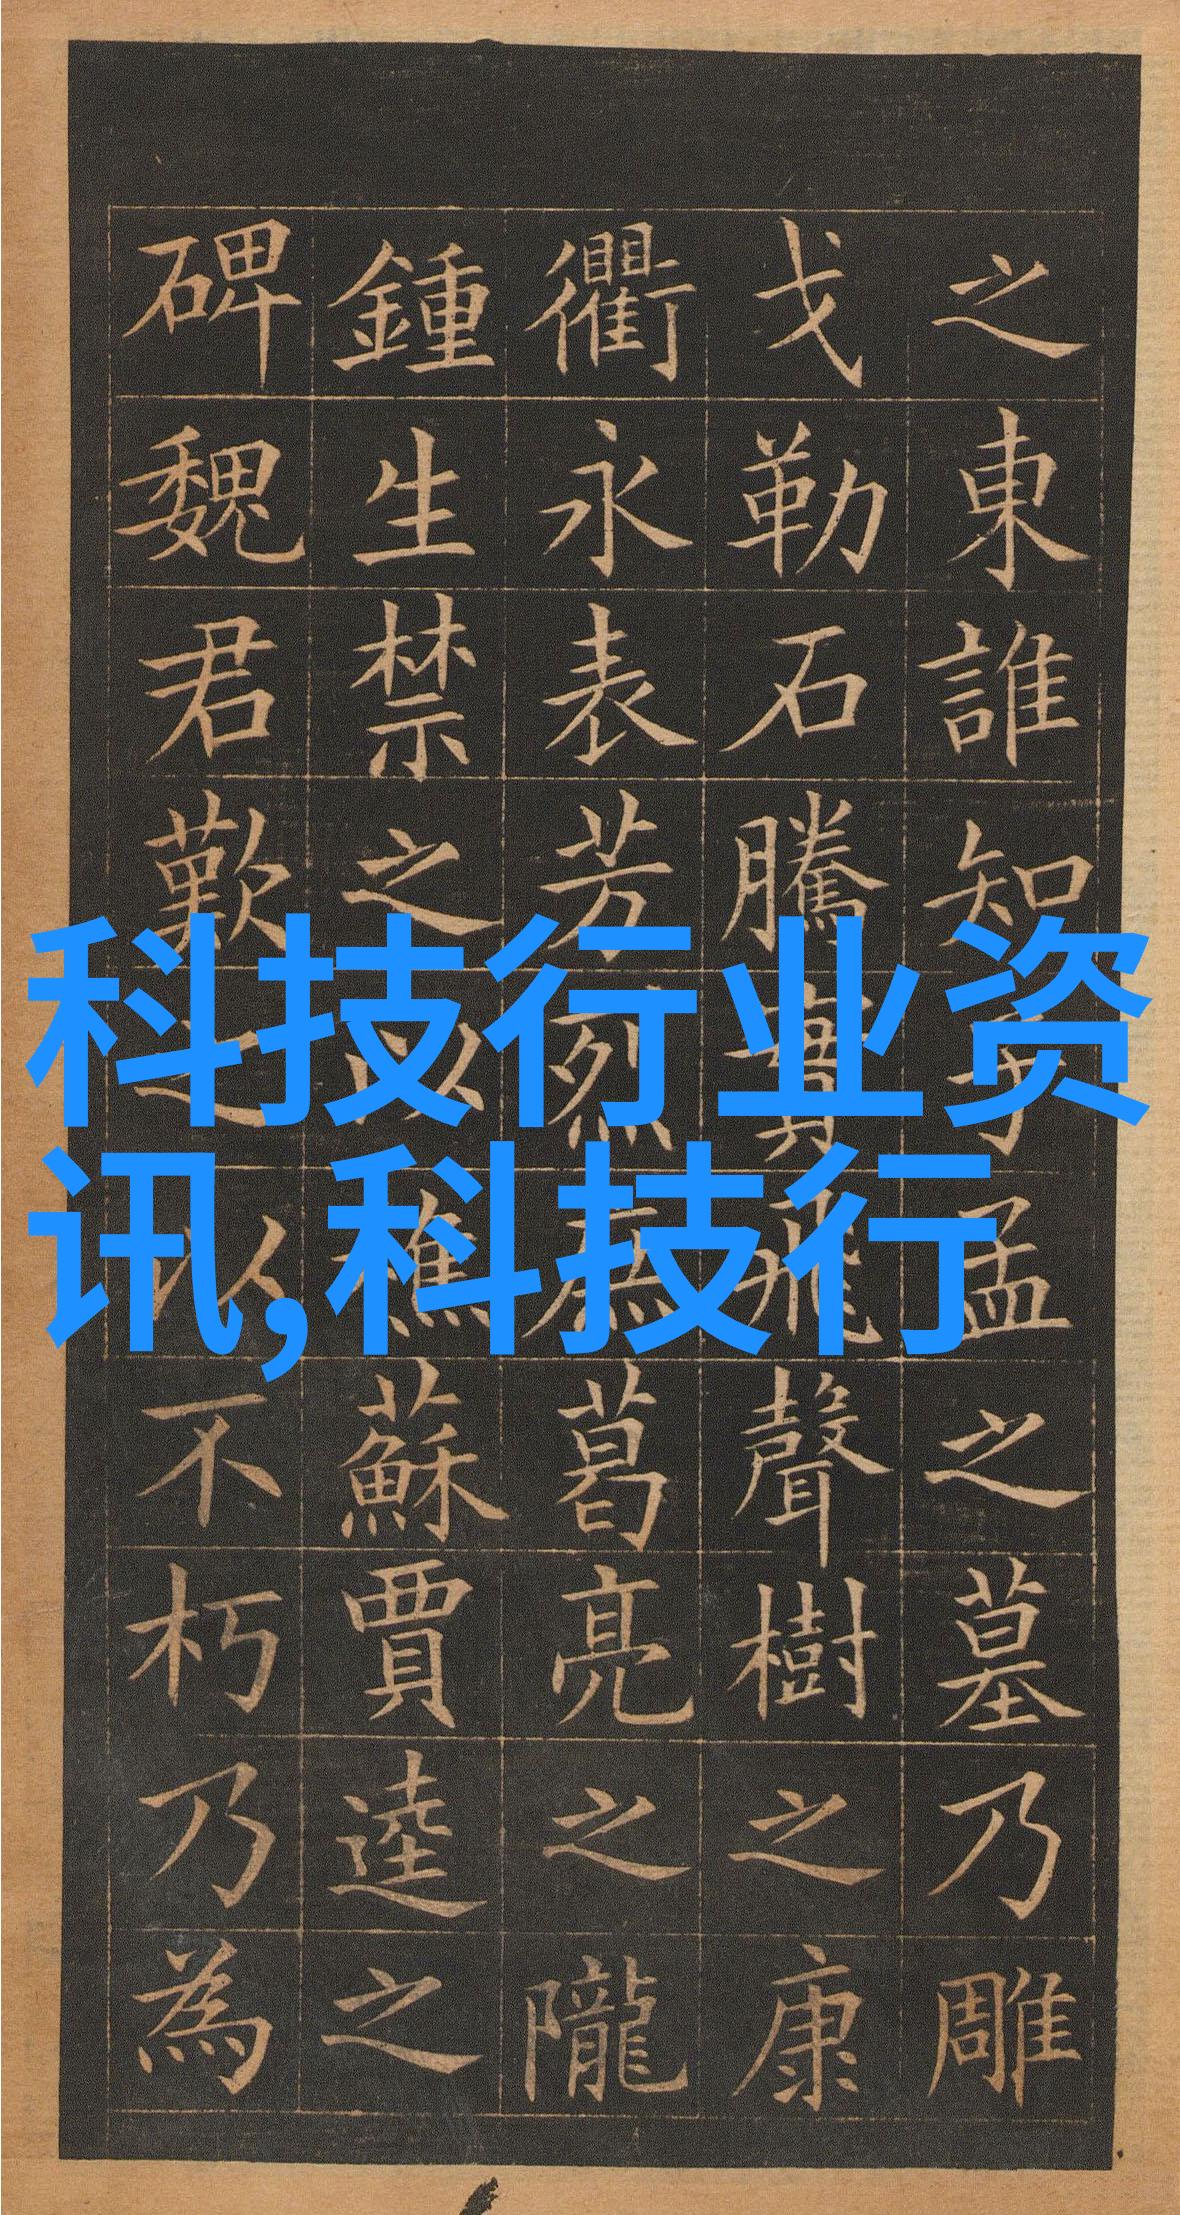 之東誰知子孟之墓乃雕
戈勒石騰實飛聲樹之康
衢永表芳烈庶葛亮之隴
鍾生禁之以樵蘇賈逵之
碑魏君歎之以不朽乃為
科技行业资
讯,科技行